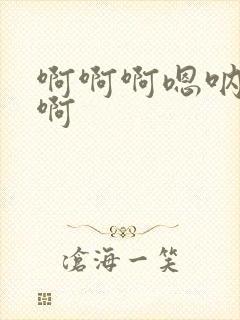 啊啊啊嗯呐
啊
滄海一笑